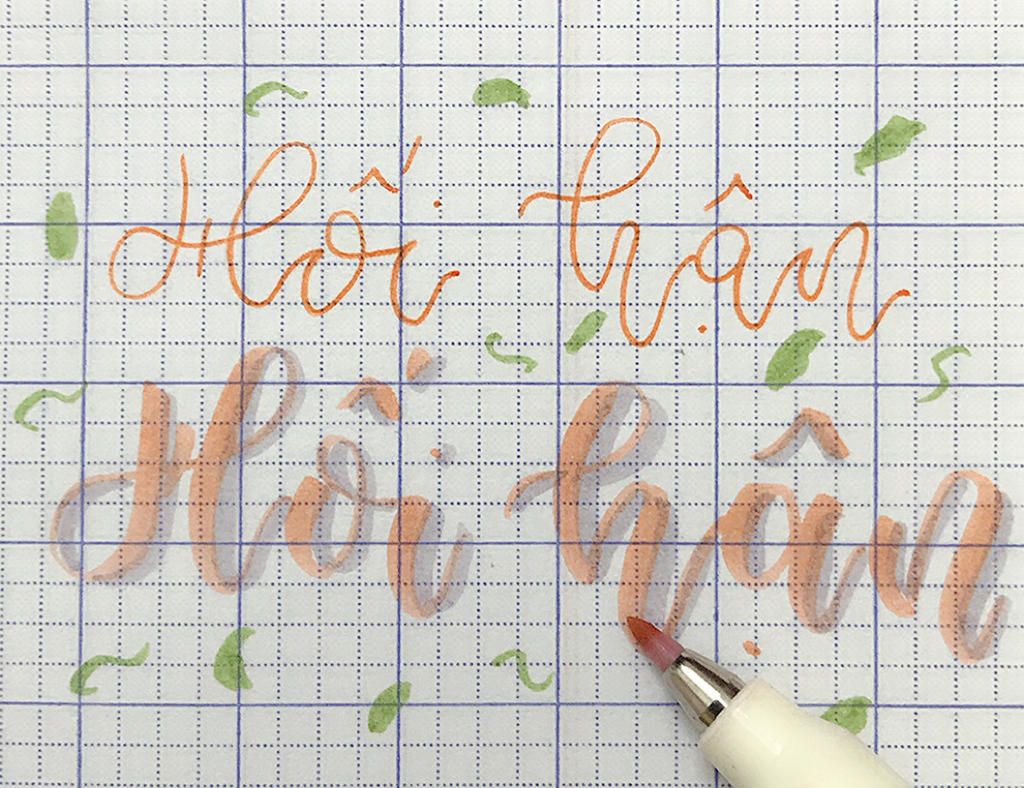 Hối hận
Hối hận